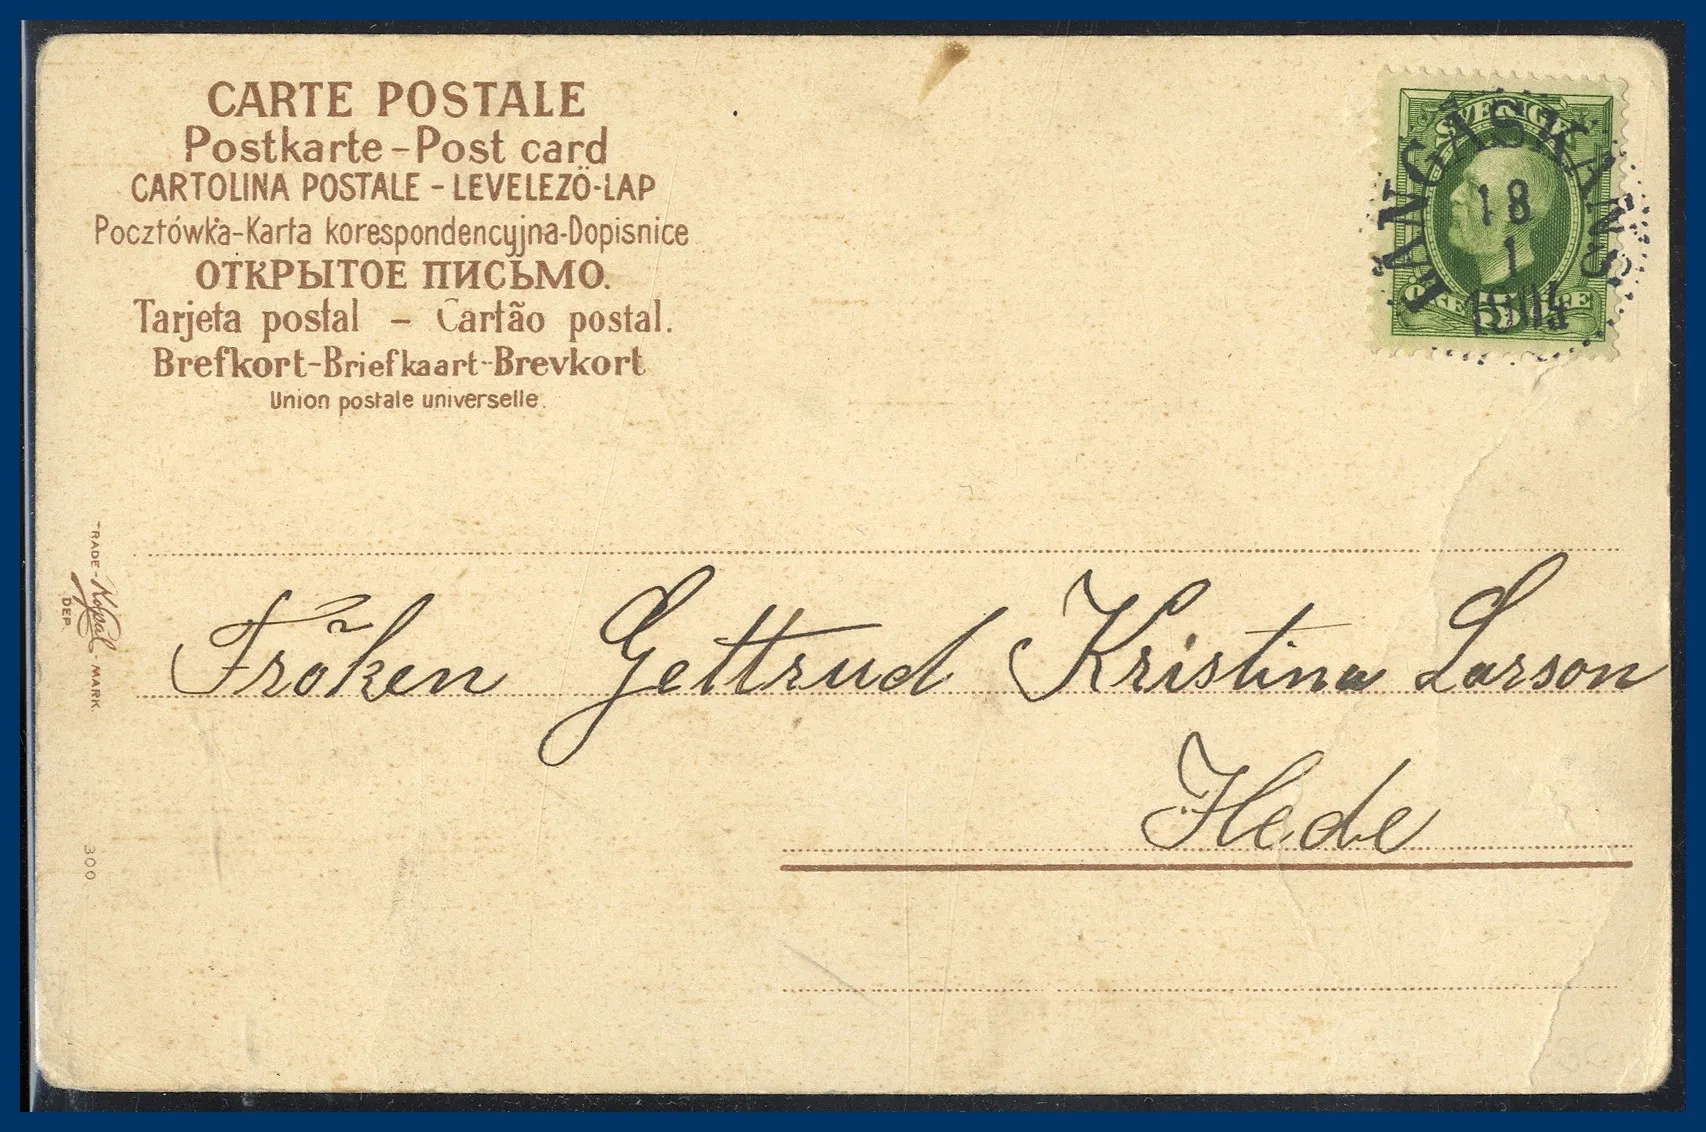 CARTE POSTALE
Postkarte-Post card
CARTOLINA POSTALE - LEVELEZÖ-LAP
Pocztówka-Karta korespondencyjna-Dopisnice
ОТКРЫТОЕ ПИСЬМО.
Tarjeta postal - Cartão postal.
Brefkort-Briefkaart-Brevkort
Union postale universelle.
SVERIGE
LÅNGASKÄNS
18
1
1904
5
ÖRE
RADE-
Kopal
-MARK.
DEP.
300
Fröken Gettrud Kristina Larson
Hede